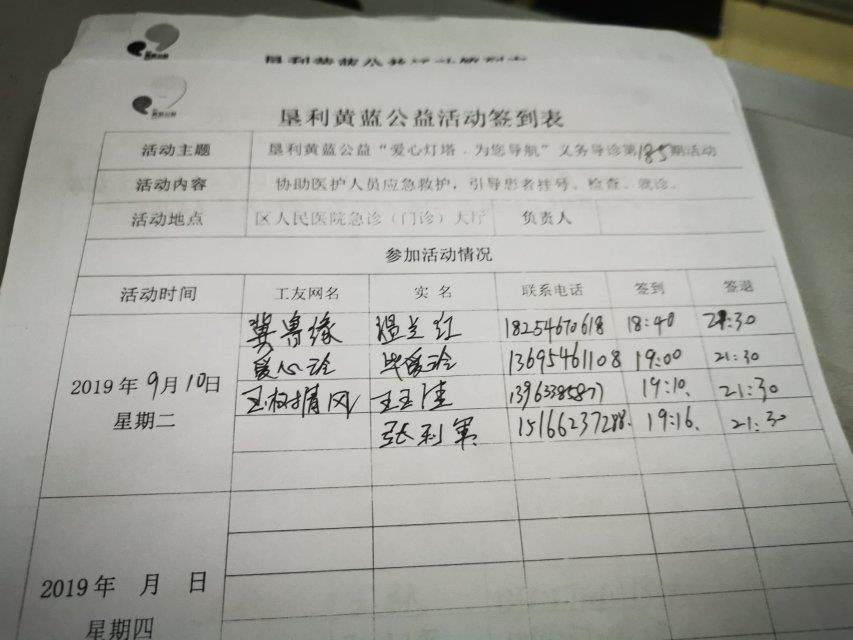 垦利黄蓝公益活动签到表
活动主题 垦利黄蓝公益“爱心灯塔．为您导航”义务导诊第185期活动
活动内容 协助医护人员应急救护，引导患者挂号、检查、就诊。
活动地点 区人民医院急诊（门诊）大厅 负责人
参加活动情况
活动时间 工友网名 实名 联系电话 签到 签退
冀鲁缘 温兰红 18254670618 18:40 21:30
爱心玲 毕爱玲 13695461108 19:00 21:30
2019年9月10日
玉树清风 王玉佳 13963385877 19:10. 21:30
星期二
张利军 15166237288. 19:16. 21:30
2019年 月 日
星期四